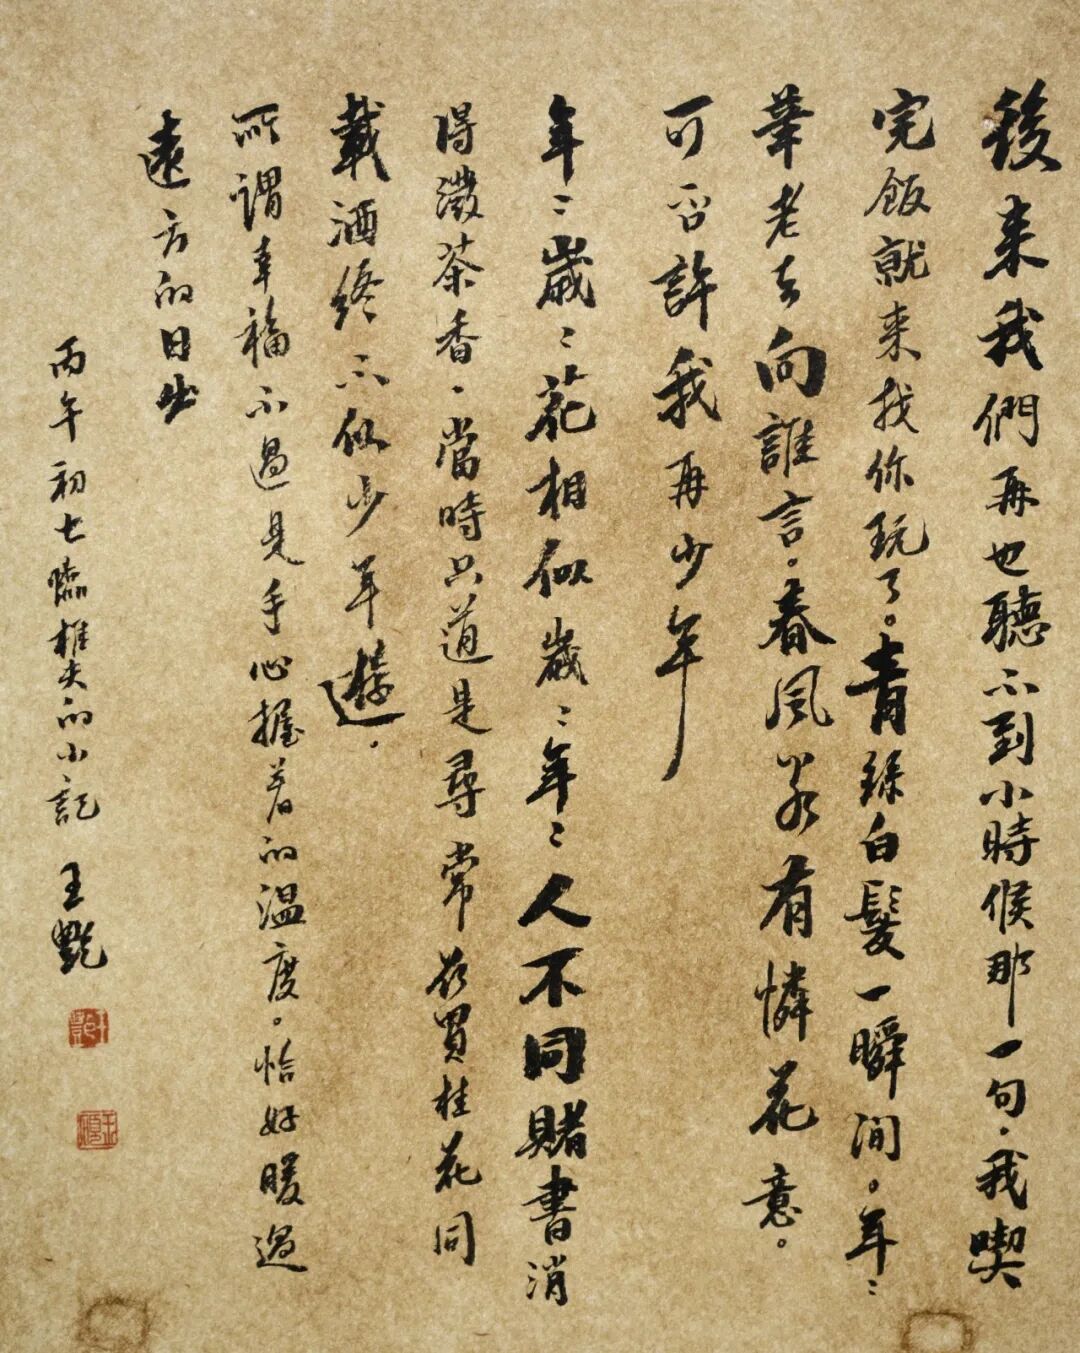 後来我們再也聽不到小時候那一句，我喫
完飯就来找你玩了。青絲白髮一瞬间。年〻
華老去向誰言。春風若有憐花意。
可否許我再少年
年〻歲〻花相似歲〻年〻人不同賭書消
得潑茶香，當時只道是尋常欲買桂花同
載酒終不似少年遊，
所謂幸福不過是手心握着的温度。恰好暖過
遠方的日出
丙午初七臨樵夫的小記 王艷